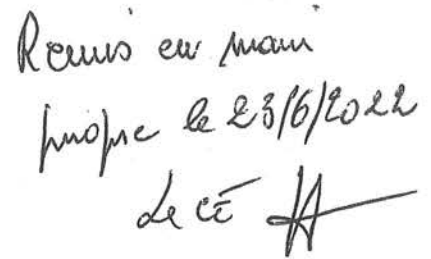 Remis en main
propre le 23/6/2022
Le CE